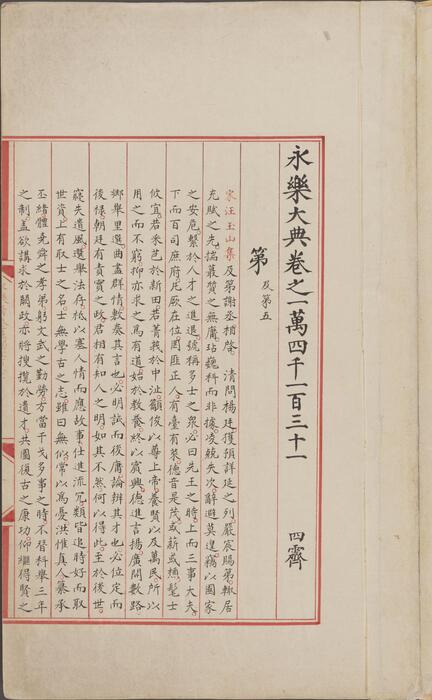 永樂大典卷之一萬四千一百三十一 四霽
第 及第五
宋汪玉山集 及第謝丞相啓 清問楊廷獲預詳延之列嚴宸賜第輒居
充賦之先揣質之無庸玷巍科而非據凌兢失次辭避莫遑竊以國家
之安危繫於人才之進退號稱多士之衆必曰先王之時上而三事大夫
下而百司庶府凡厥在位罔匪正人有臺有萊德音是茂或薪或槱髦士
攸宜若采芑於新田若菁莪於中沚籲俊以尊上帝養賢以及萬民所以
用之而不窮抑亦求之爲有道始於教養終以賓興德進言揚廣開數路
鄉舉里選曲盡群情敷奏其言也必明試而後庸論辨其才也必位定而
後禄朝廷有責實之政君相有知人之明如其不然何以得此至於後世
寖失遺風選舉法存秪以塞人情而應故事仕進流冗類皆追時好而取
世資上有取士之名士無學古之志雖曰無似常以爲憂洪惟真人纂承
丕緒體堯舜之孝弟躬文武之勤勞方當干戈多事之時不替科舉三年
之制蓋欲講求於闕政亦將搜攬於遺才共圖復古之康功仰繼得賢之